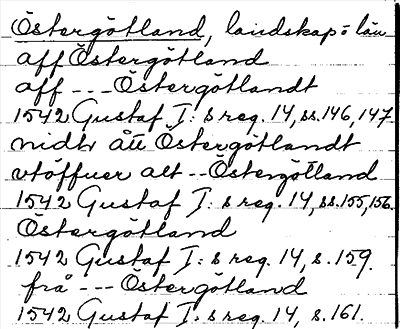 Östergötland, landskap = län
aff Östergötland
aff --- Östergötlandt
1542 Gustaf I: s reg. 14, ss. 146, 147.
nidr ått Östergötlandt
vtöffuer alt -- Östergötland
1542 Gustaf I: s reg. 14, ss. 155, 156.
Östergötland
1542 Gustaf I: s reg. 14, s. 159.
frå --- Östergötland
1542 Gustaf I: s reg. 14, s. 161.